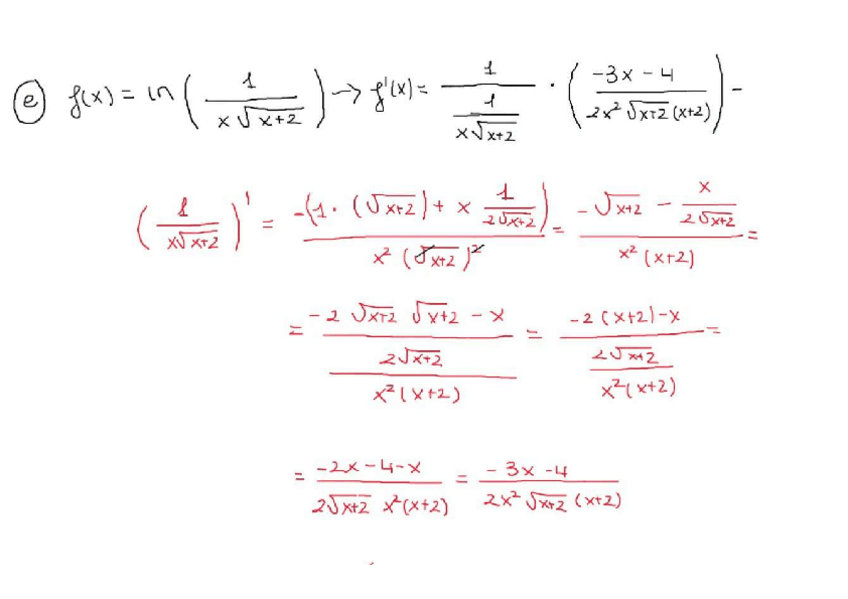 (e) f(x) = ln ( 1 / (x√(x+2)) ) → f'(x) = 1 / ( 1 / (x√(x+2)) ) · ( (-3x - 4) / (2x² √(x+2) (x+2)) ) -
( 1 / (x√(x+2)) )' = -(1 · (√(x+2)) + x 1 / (2√(x+2))) / (x² (√(x+2))²) = (-√(x+2) - x / (2√(x+2))) / (x² (x+2)) =
= ((-2 √(x+2) √(x+2) - x) / (2√(x+2))) / (x² (x+2)) = ((-2 (x+2) - x) / (2√(x+2))) / (x² (x+2)) =
= (-2x - 4 - x) / (2√(x+2) x² (x+2)) = (-3x - 4) / (2x² √(x+2) (x+2))